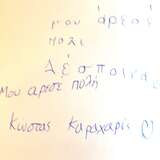 μου άρεσε
πολύ
Δέσποινα
Μου άρεσε πολή
Κώστας Καραχαρίς